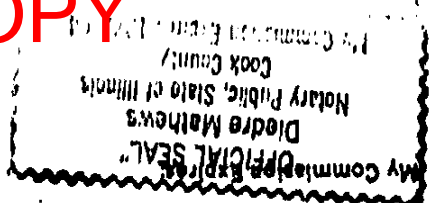 OPY
My Commission Expires
"OFFICIAL SEAL"
Diedre Mathews
Notary Public, State of Illinois
Cook County
My Commission Expires